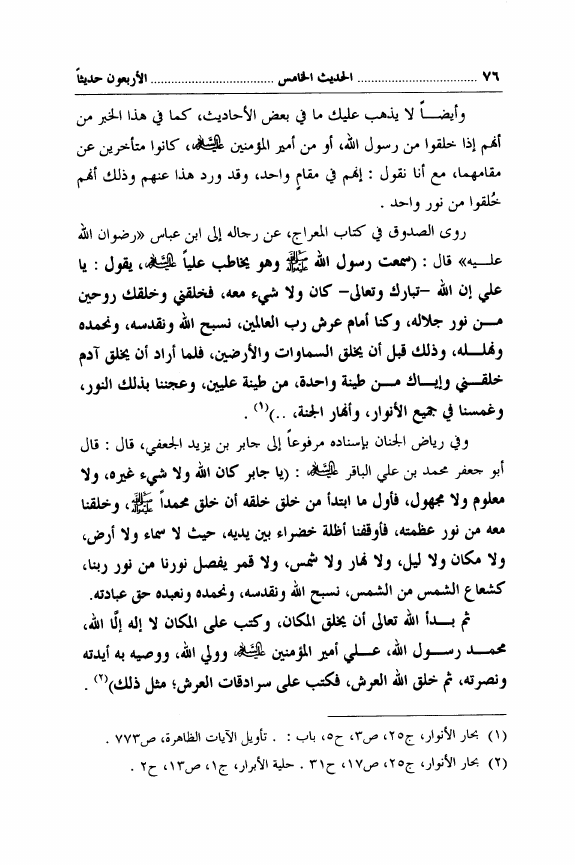 ٧٦ ................................... الحديث الخامس ................................... الأربعون حديثاً
وأيضـــاً لا يذهب عليك ما في بعض الأحاديث، كما في هذا الخبر من
أنهم إذا خلقوا من رسول الله، أو من أمير المؤمنين عليه السلام، كانوا متأخرين عن
مقامهما، مع أنا نقول : إنهم في مقامٍ واحد، وقد ورد هذا عنهم وذلك أنهم
خُلقوا من نور واحد .
روى الصدوق في كتاب المعراج، عن رجاله إلى ابن عباس «رضوان الله
علـــيه» قال : (سمعت رسول الله ﷺ وهو يخاطب علياً عليه السلام، يقول : يا
علي إن الله –تبارك وتعالى– كان ولا شيء معه، فخلقني وخلقك روحين
مـــن نور جلاله، وكنا أمام عرش رب العالمين، نسبح الله ونقدسه، ونحمده
ونهلـــله، وذلك قبل أن يخلق السماوات والأرضين، فلما أراد أن يخلق آدم
خلقـــني وإيـــاك مـــن طينة واحدة، من طينة عليين، وعجننا بذلك النور،
وغمسنا في جميع الأنوار، وأنهار الجنة، ..)(١) .
وفي رياض الجنان بإسناده مرفوعاً إلى جابر بن يزيد الجعفي، قال : قال
أبو جعفر محمد بن علي الباقر عليه السلام : (يا جابر كان الله ولا شيء غيره، ولا
معلوم ولا مجهول، فأول ما ابتدأ من خلق خلقه أن خلق محمداً ﷺ، وخلقنا
معه من نور عظمته، فأوقفنا أظلة خضراء بين يديه، حيث لا سماء ولا أرض،
ولا مكان ولا ليل، ولا نهار ولا شمس، ولا قمر يفصل نورنا من نور ربنا،
كشعاع الشمس من الشمس، نسبح الله ونقدسه، ونحمده ونعبده حق عبادته.
ثم بـــدأ الله تعالى أن يخلق المكان، وكتب على المكان لا إله إلّا الله،
محمـــد رســـول الله، عـــلي أمير المؤمنين عليه السلام وولي الله، ووصيه به أيدته
ونصرته، ثم خلق الله العرش، فكتب على سرادقات العرش؛ مثل ذلك)(٢) .
(١) بحار الأنوار، ج٢٥، ص٣، ح٥، باب : . تأويل الآيات الظاهرة، ص٧٧٣ .
(٢) بحار الأنوار، ج٢٥، ص١٧، ح٣١ . حلية الأبرار، ج١، ص١٣، ح٢ .